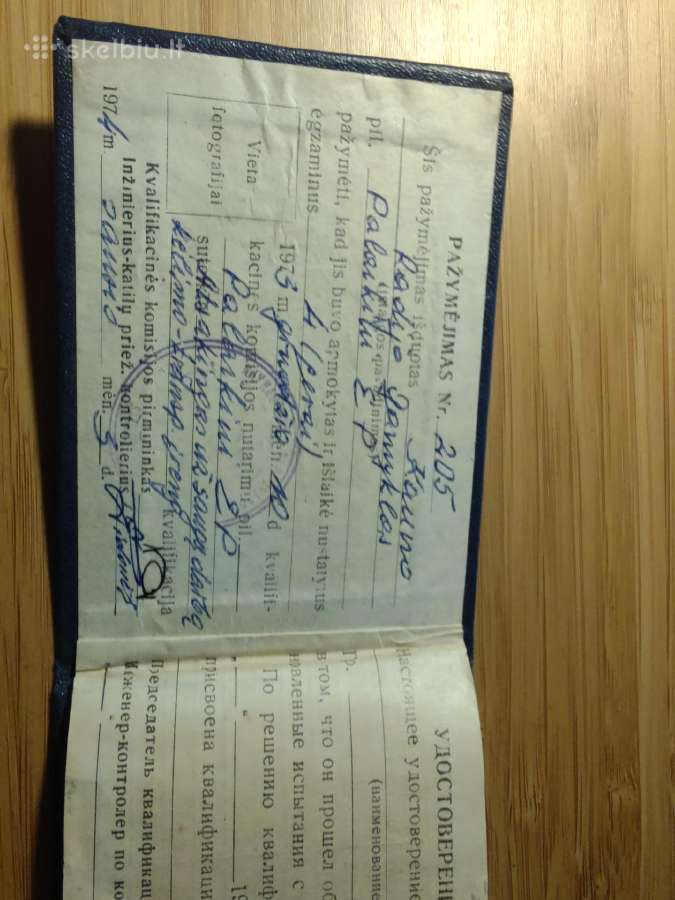 skelbiu.lt
PAŽYMĖJIMAS Nr. 205
Šis pažymėjimas išduotas Kauno
Radijo Gamyklos
pil. Palaikiui
pažymėti, kad jis buvo apmokytas ir išlaikė nustatytus
egzaminus 4 (gerai)
1973 m. gruodžio mėn. 10 d kvalifi-
kacinės komisijos nutarimu pil.
kvalifikacija
Vieta
fotografijai
Kvalifikacinės komisijos pirmininkas
Inžinierius-katilų priež. kontrolierius
1974 m. mėn. 5 d.
УДОСТОВЕРЕН
Настоящее удостоверение
(наименование
Гр.
в том, что он прошел об
новленные испытания с
По решению квалиф
" " 19
присвоена квалификаци
Председатель квалификац
Инженер-контролер по ко